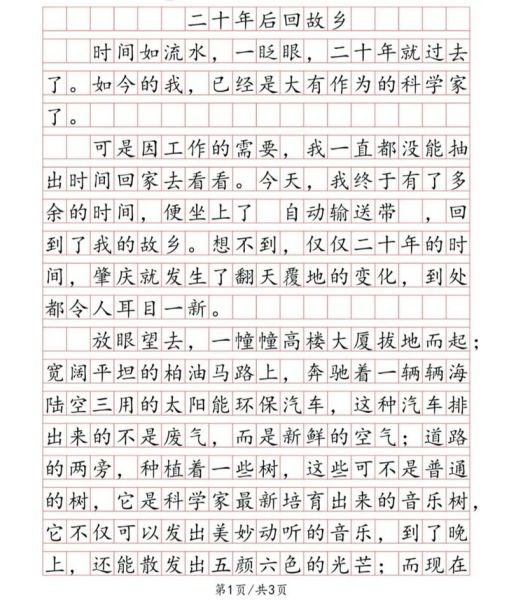 二十年后回故乡
时间如流水，一眨眼，二十年就过去
了。如今的我，已经是大有作为的科学家
了。
可是因工作的需要，我一直都没能抽
出时间回家去看看。今天，我终于有了多
余的时间，便坐上了 自动输送带 ，回
到了我的故乡。想不到，仅仅二十年的时
间，肇庆就发生了翻天覆地的变化，到处
都令人耳目一新。
放眼望去，一幢幢高楼大厦拔地而起；
宽阔平坦的柏油马路上，奔驰着一辆辆海
陆空三用的太阳能环保汽车，这种汽车排
出来的不是废气，而是新鲜的空气；道路
的两旁，种植着一些树，这些可不是普通
的树，它是科学家最新培育出来的音乐树，
它不仅可以发出美妙动听的音乐，到了晚
上，还能散发出五颜六色的光芒；而现在
第1页/共3页